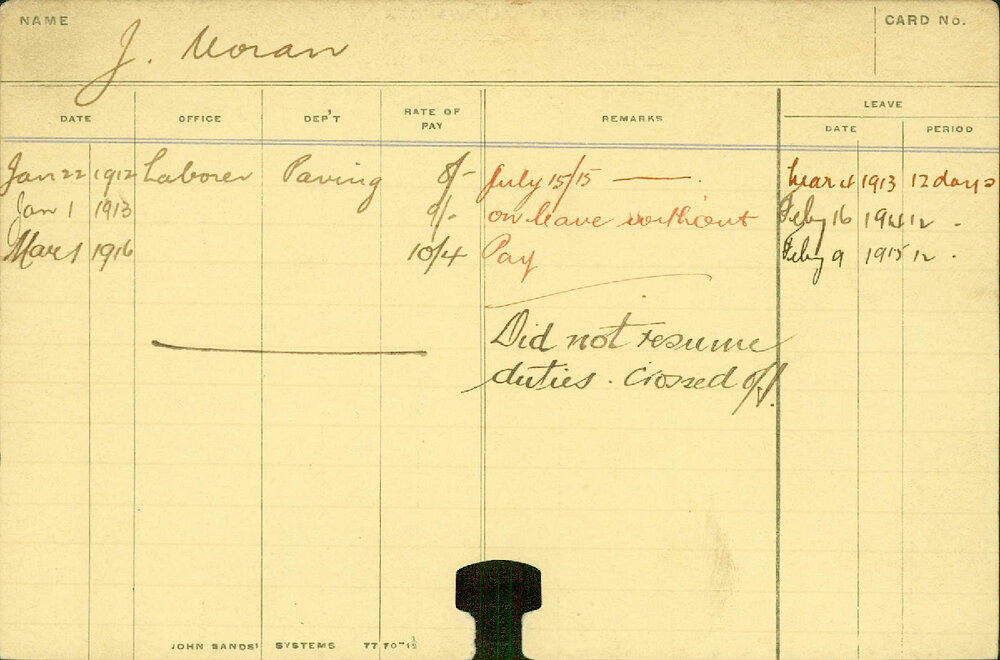 NAME
J. Moran
CARD No.
DATE OFFICE DEP'T RATE OF PAY REMARKS LEAVE
DATE PERIOD
Jan 22 1912 Laborer Paving 8/- July 15/15 — . Mar 4 1913 12 days
Jan 1 1913 9/- on leave without Feby 16 1914 12 .
Mar 1 1916 10/4 Pay Feby 9 1915 12 .
Did not resume
duties. Crossed off.
JOHN SANDS' SYSTEMS